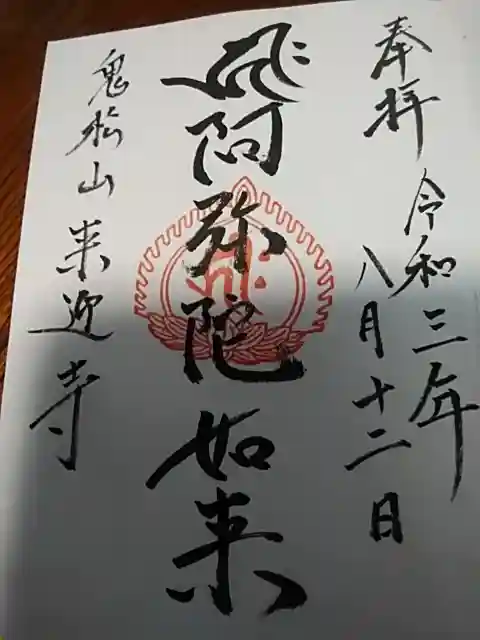 奉拝
令和三年
八月十二日
阿弥陀如来
鬼松山 来迎寺